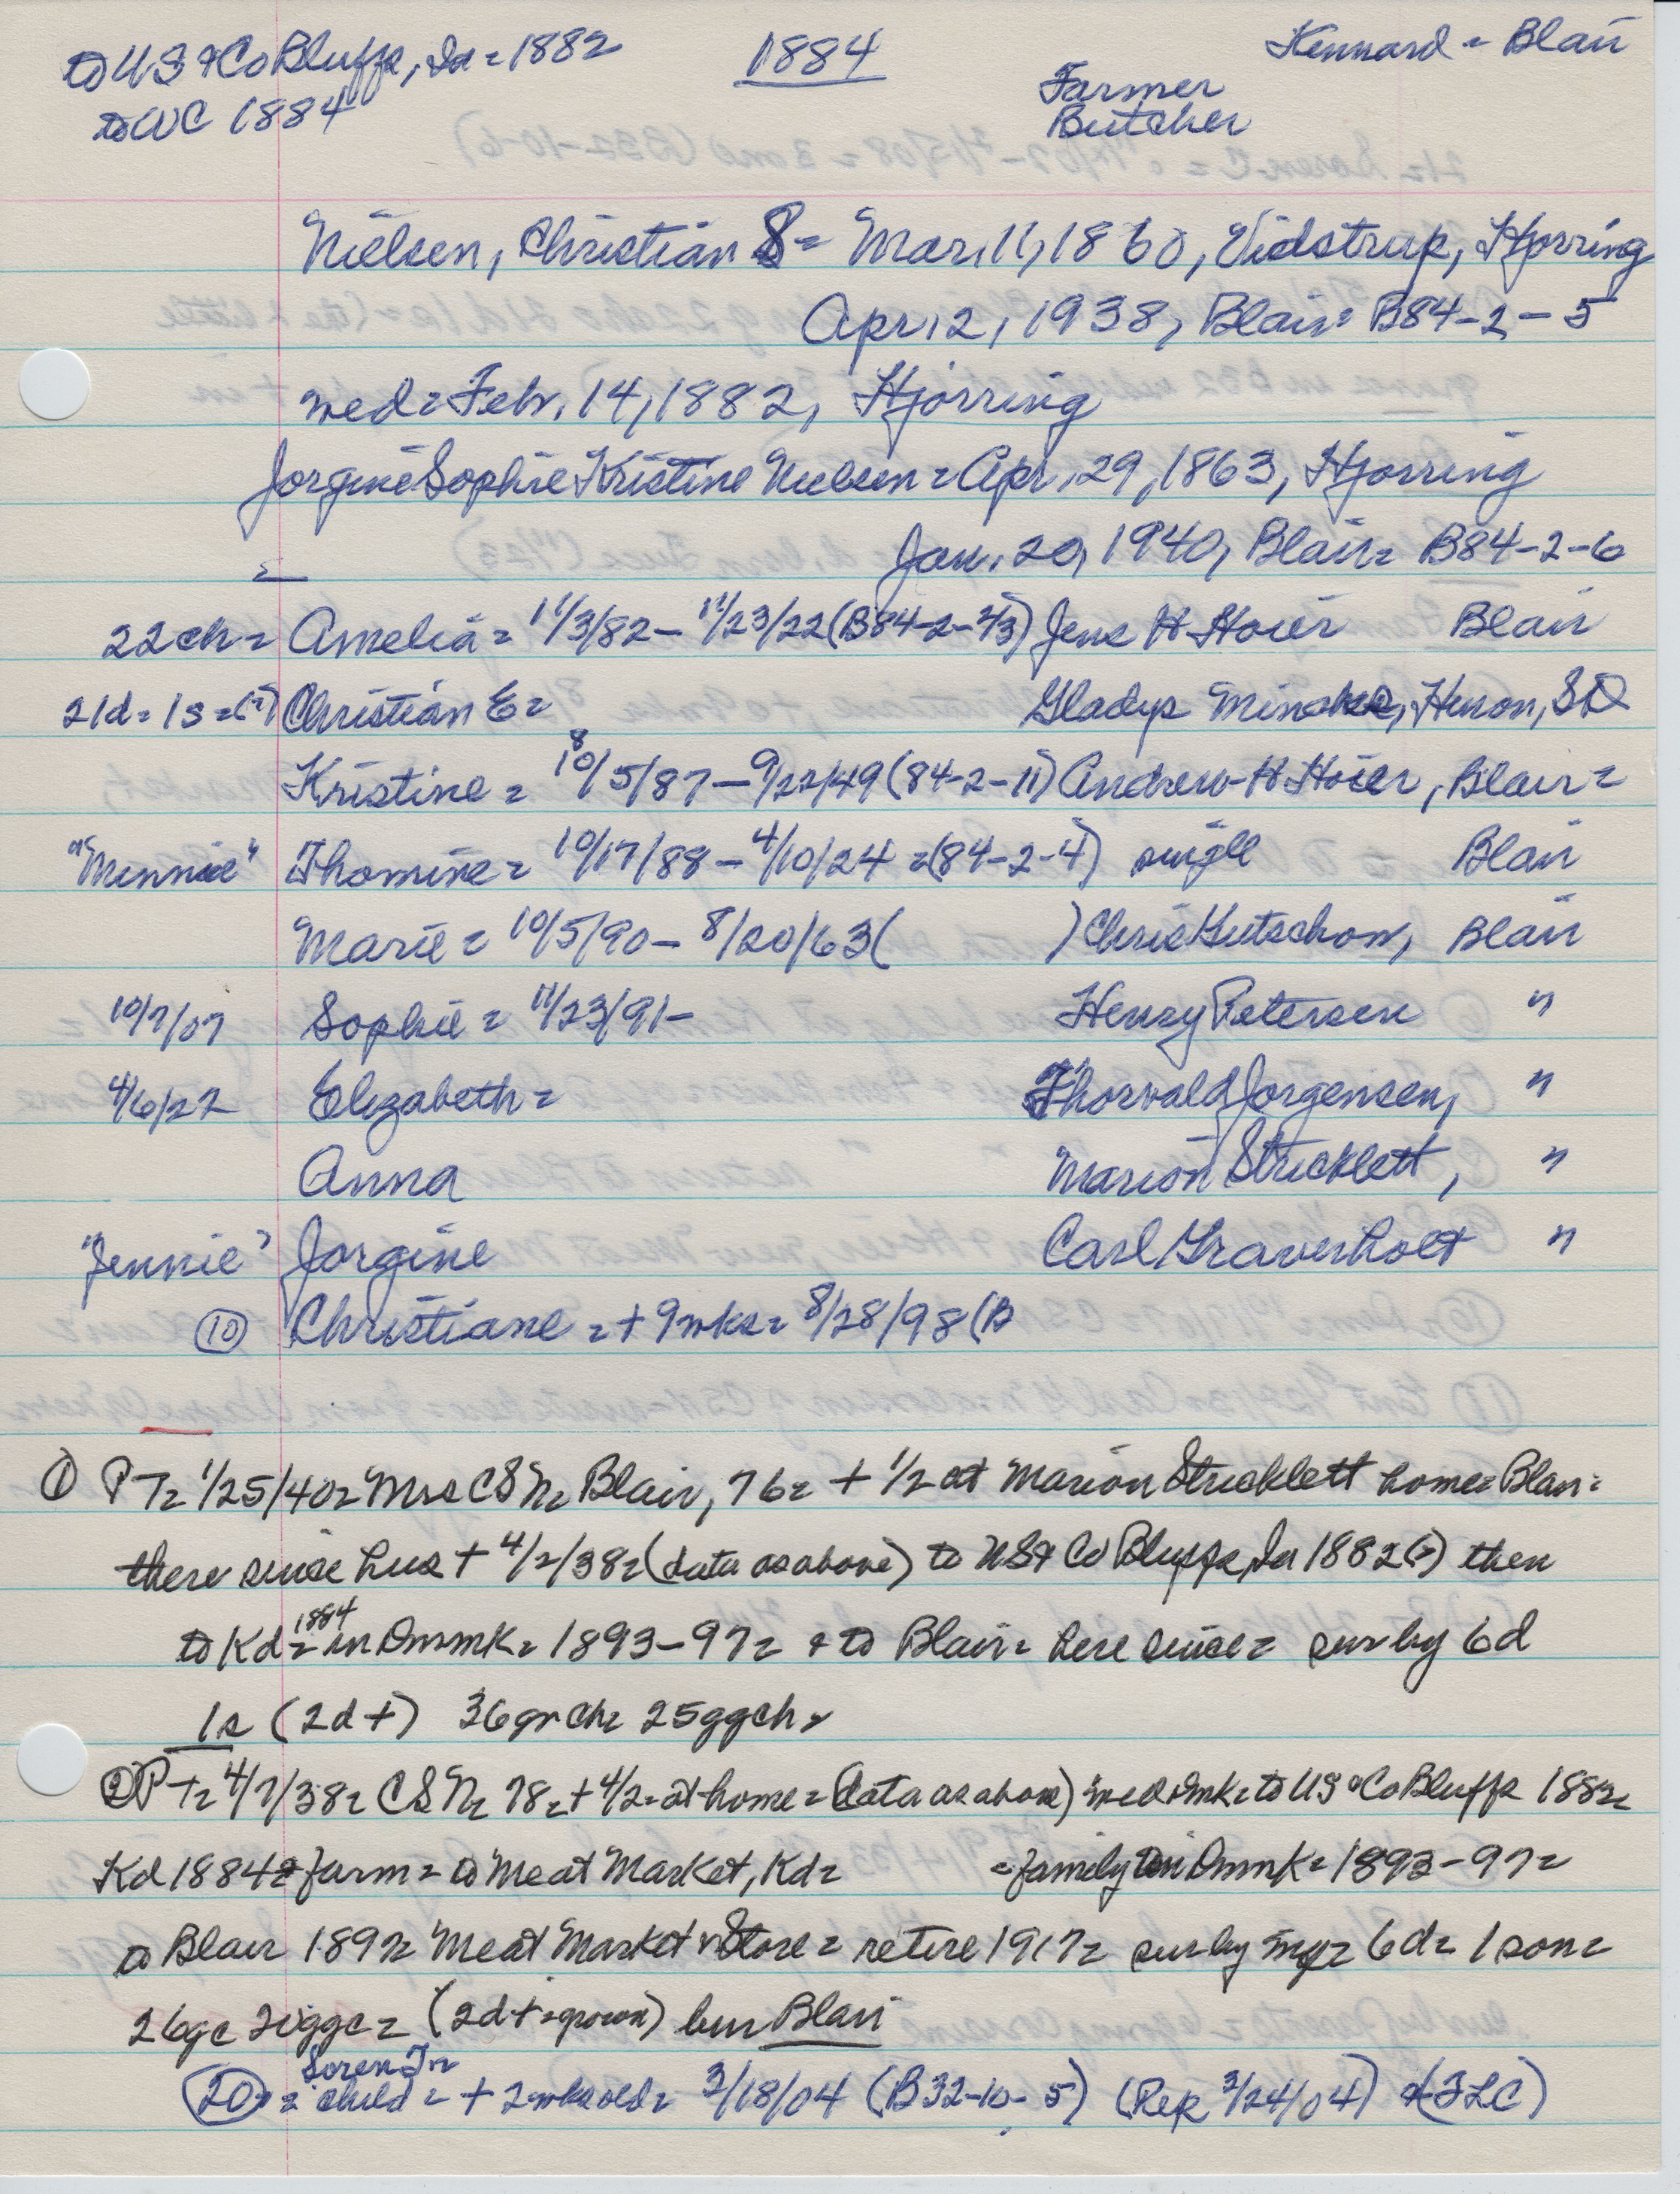 to US & Co Bluffs, Ia = 1882
1884
Kennard = Blair
to WC 1884
Farmer
Butcher
Nielsen, Christian S = Mar. 11, 1860, Vidstrup, Hjorring
Apr. 2, 1938, Blair = B84-2-5
wed = Feb. 14, 1882, Hjorring
Jorgine Sophie Kristine Nielsen = Apr. 29, 1863, Hjorring
Jan. 20, 1940, Blair = B84-2-6
=
22 ch = Amelia = 11/3/82 - 11/23/22 (B84-2-2/3) Jens H Hoier Blair
21d = 1s = (?) Christian E = Gladys Huron, SD
Kristine = 10/5/87 - 9/22/49 (84-2-11) Andrew H Hoier, Blair =
8
"Minnie" Thomine = 10/17/88 - 4/10/24 = (84-2-4) single Blair
Marie = 10/5/90 - 8/20/63 ( ) Chris Gutschow, Blair
10/7/07 Sophie = 11/23/91 - Henry Petersen "
4/6/22 Elizabeth = Thorvald Jorgensen, "
Anna Marion Stricklett, "
"Jennie" Jorgine Carl Graverholt "
(10) Christiane = + 9 wks = 8/28/98 (B
(1) PT = 1/25/40 = Mrs CSN = Blair, 76 = + 1/2 at Marion Stricklett home = Blair =
there since hus + 4/2/38 = (data as above) to US & Co Bluffs, Ia 1882 (?) then
to Kd = 1884 in Dnmk = 1893-97 = & to Blair = here since = sur by 6d
1s (2d +) 36 gr ch = 25 ggch =
(2) PT = 4/7/38 = CSN = 78 = + 4/2 = at home = (data as above) wed Dmk = to US & Co Bluffs 1882 =
Kd 1884 = farm = to Meat Market, Kd = = family in Dnmk = 1893-97 =
to Blair 1897 = Meat Market & Store = retire 1917 = sur by 6d = 1 son =
26gc 20ggc = (2d + = grown) bur Blair
Soren Jn
(20) = child = + 2 wks old = 3/18/04 (B32-10-5) (Rep 3/24/04) (FLC)